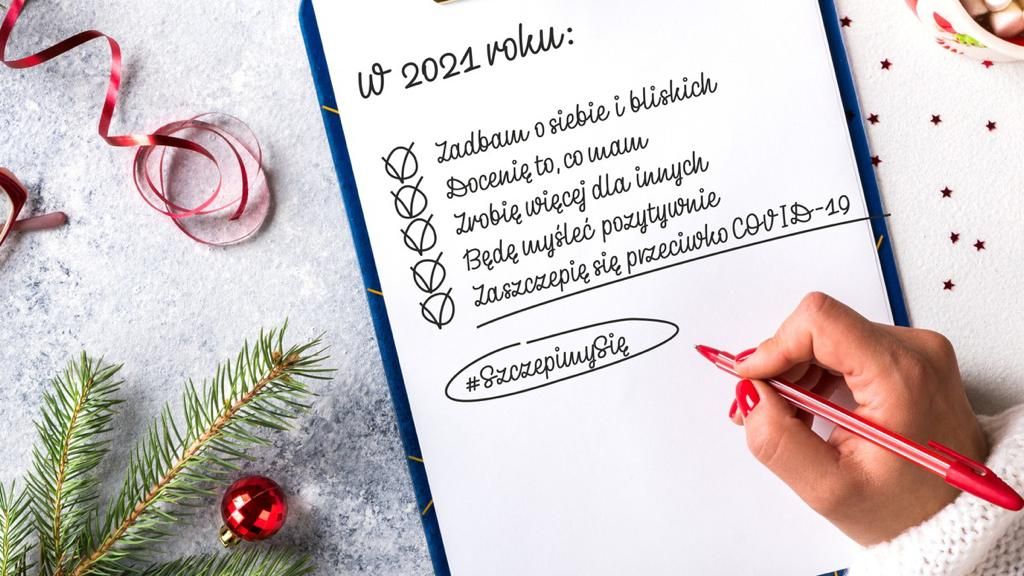 W 2021 roku:
Zadbam o siebie i bliskich
Docenię to, co mam
Zrobię więcej dla innych
Będę myśleć pozytywnie
Zaszczepię się przeciwko COVID-19
#SzczepimySię